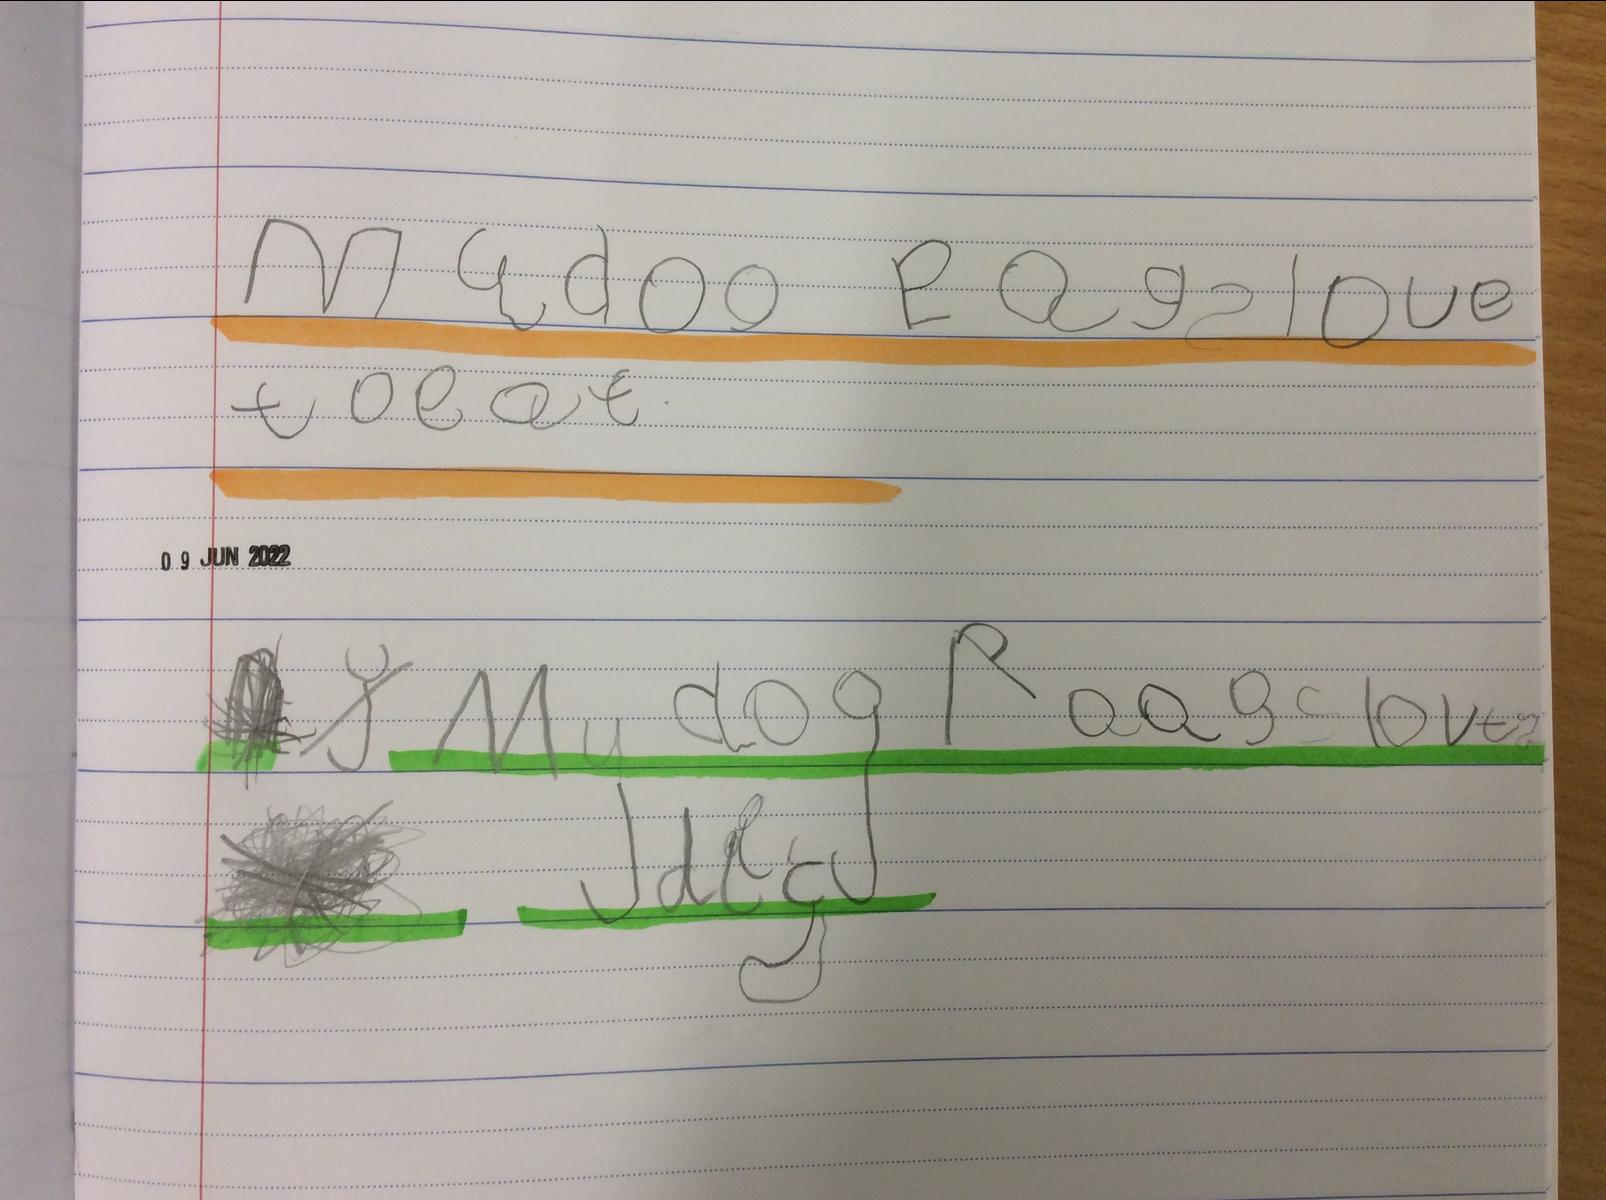 My dog Rags love
to eat.
09 JUN 2022
My dog Raags loves